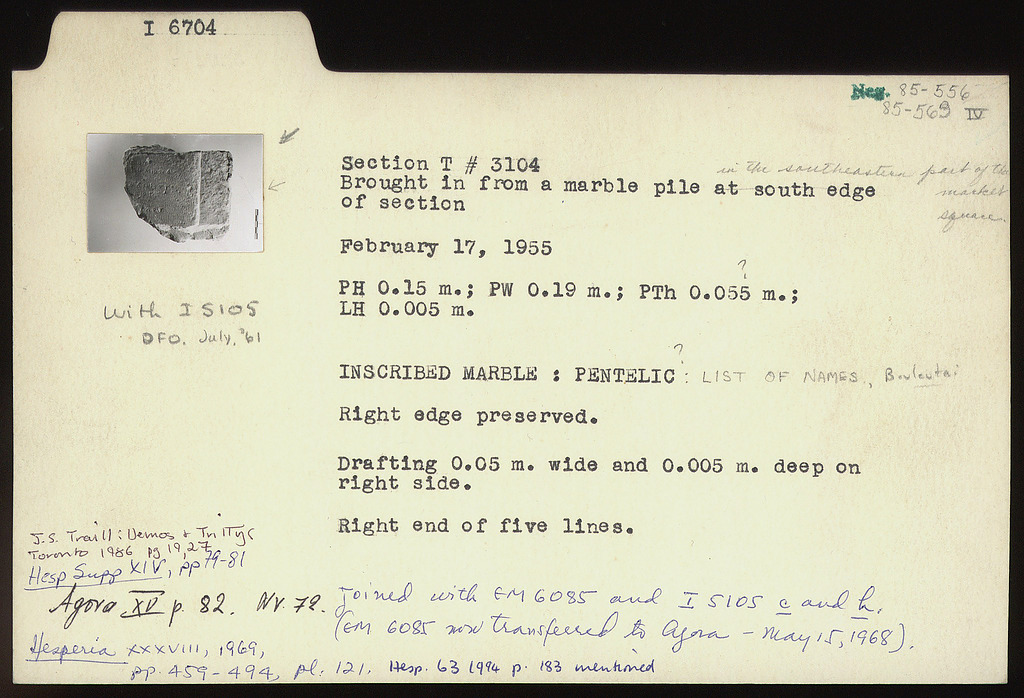 I 6704
Neg. 85-556
85-569 IV
Section T # 3104
in the southeastern part of the
Brought in from a marble pile at south edge
market
of section
square.
February 17, 1955
?
PH 0.15 m.; PW 0.19 m.; PTh 0.055 m.;
LH 0.005 m.
With I 5105
DFO. July, '61
?
INSCRIBED MARBLE : PENTELIC : LIST OF NAMES, Bouleutai
Right edge preserved.
Drafting 0.05 m. wide and 0.005 m. deep on
right side.
Right end of five lines.
J.S. Traill: Demos + Trittys
Toronto 1986 pg 19, 27,
Hesp Supp XIV, pp 79-81
Agora XV p. 82. Nr. 72.
Joined with EM 6085 and I 5105 c and h.
(EM 6085 now transferred to Agora - May 15, 1968).
Hesperia XXXVIII, 1969,
pp. 459-494, pl. 121. Hesp. 63 1994 p. 183 mentioned